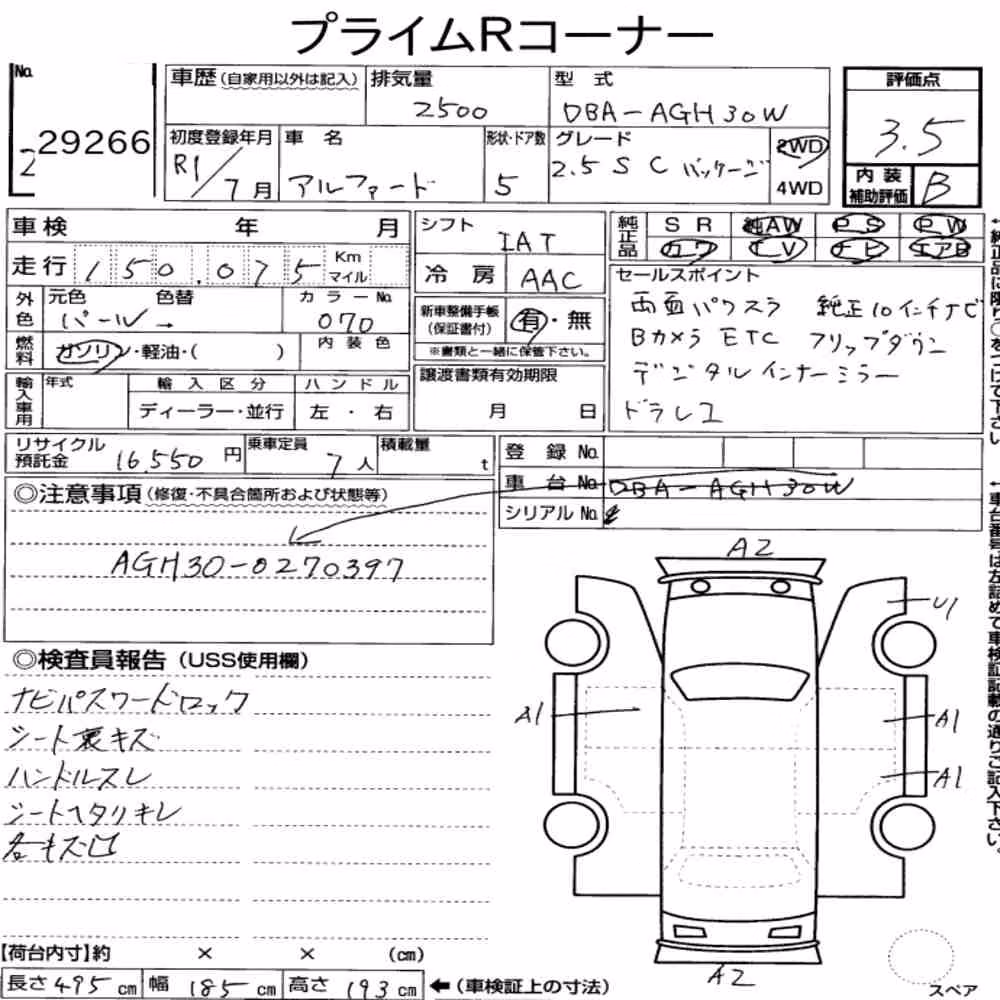 プライムRコーナー
No. 29266
2
車歴(自家用以外は記入)
排気量 2500
型式 DBA-AGH30W
評価点 3.5
初度登録年月 R1/7月
車名 アルファード
形状・ドア数 5
グレード 2.5 S C パッケージ
2WD
4WD
内装補助評価 B
車検 年 月
シフト IAT
純正品 SR 純AW PS PW
カワ TV ナビ エアB
走行 150,075 Km マイル
冷房 AAC
セールスポイント
両面パワスラ 純正10インチナビ
Bカメラ ETC フリップダウン
デジタルインナーミラー
ドラレコ
外色 元色 色替 カラーNo.
パール → 070
新車整備手帳(保証書付) 有・無
※書類と一緒に保管下さい。
燃料 ガソリン・軽油・( ) 内装色
譲渡書類有効期限
月 日
輸入車用 年式 輸入区分 ハンドル
ディーラー・並行 左・右
リサイクル預託金 16,550円
乗車定員 7人
積載量 t
登録No.
車台No. DBA-AGH30W
シリアルNo.
◎注意事項(修復・不具合箇所および状態等)
AGH30-0270397
◎検査員報告(USS使用欄)
ナビパスワードロック
シート裏キズ
ハンドルスレ
シートヘタリキレ
各キズ凹
A2
U1
A1
A1
A1
A2
スペア
【荷台内寸】約 × × (cm)
長さ 495 cm 幅 185 cm 高さ 193 cm ←(車検証上の寸法)
←純正品に限り○をつけて下さい
←車台番号は左詰めで車検証記載の通りご記入下さい。